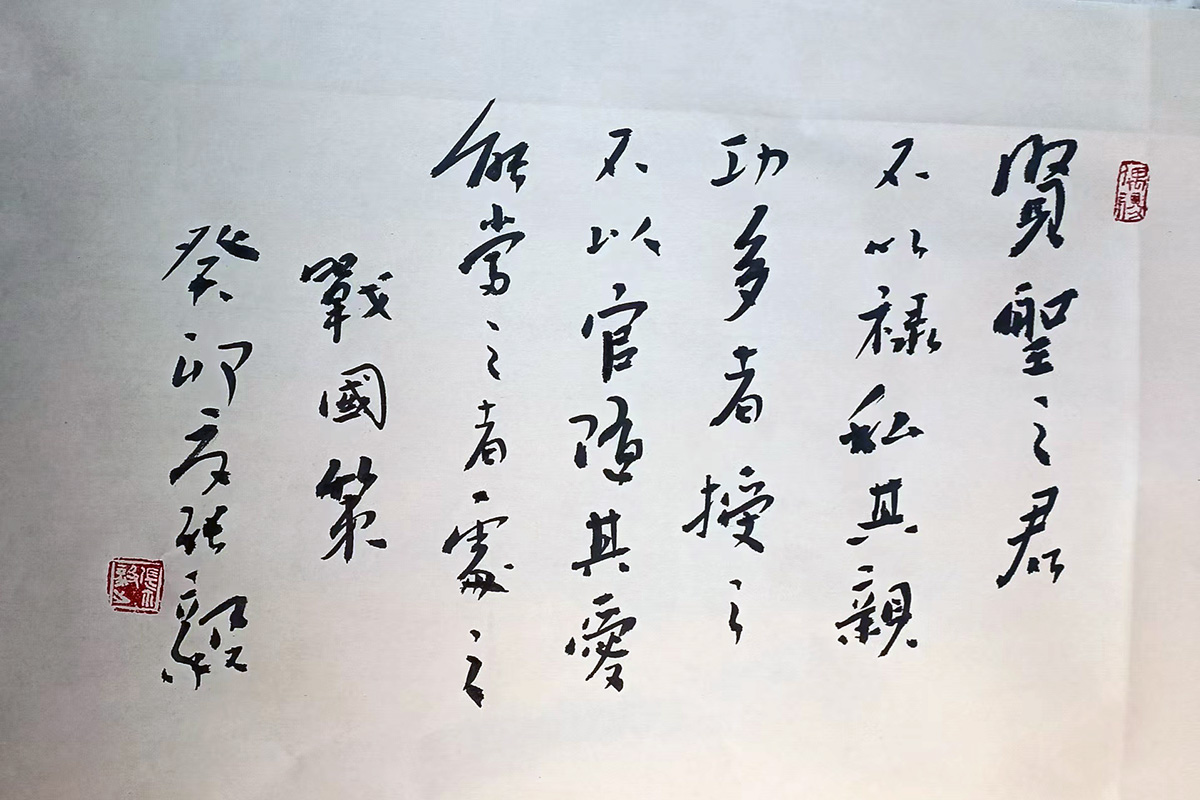 賢聖之君
不以禄私其親
功多者授之
不以官隨其愛
能當之者處之
戰國策
癸卯夏張毅